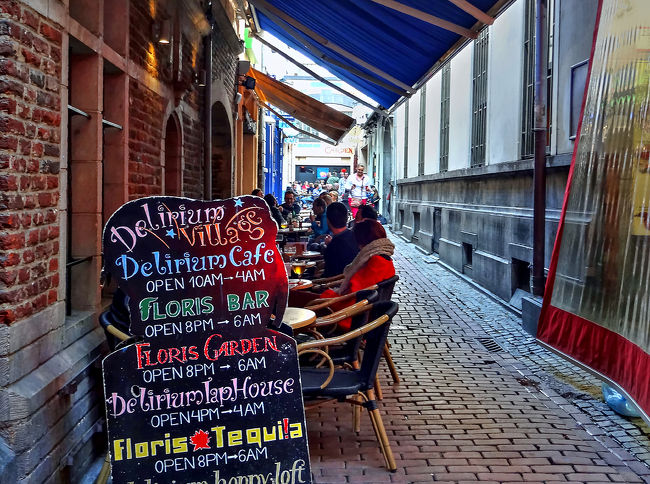 Delirium
Village
Delirium Cafe
OPEN 10AM→4AM
FLORIS BAR
OPEN 8PM → 6AM
FLORIS GARDEN
OPEN 8PM → 6AM
Delirium TapHouse
OPEN 4PM → 4AM
Floris Tequila
OPEN 8PM → 6AM
delirium hoppy loft